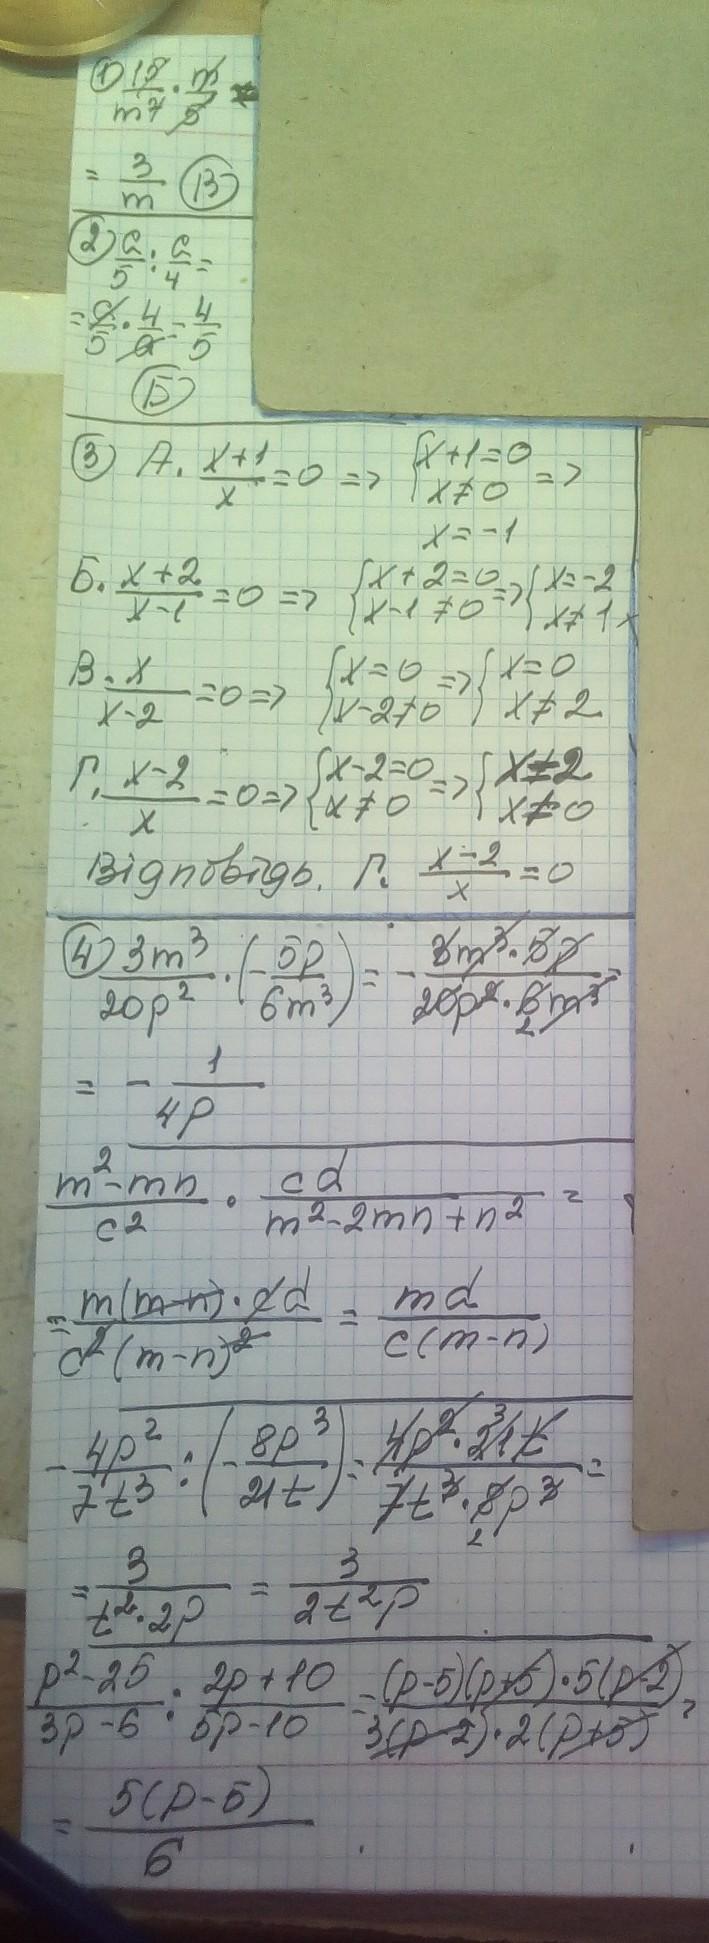 ① 15/m7 · m/5 =
= 3/m (В)
② a/5 : a/4 =
= a/5 · 4/a = 4/5
(Б)
③ А. x+1/x = 0 => { x+1=0 x≠0 =>
x = -1
Б. x+2/x-1 = 0 => { x+2=0 x-1≠0 => { x=-2 x≠1
В. x/x-2 = 0 => { x=0 x-2≠0 => { x=0 x≠2
Г. x-2/x = 0 => { x-2=0 x≠0 => { x=2 x≠0
Відповідь. Г. x-2/x = 0
④ 3m³/20p² · (- 5p/6m³) = - 3m³·5p/20p²·6m³ =
2
= - 1/4p
m²-mn/c2 · cd/m²-2mn+n² =
= m(m-n)·cd/c²(m-n)² = md/c(m-n)
- 4p²/7t³ : (- 8p³/21t) = 4p²·21t/7t³·8p³ =
3
2
= 3/t²·2p = 3/2t²p
p²-25/3p-6 : 2p+10/5p-10 = (p-5)(p+5)·5(p-2)/3(p-2)·2(p+5) =
= 5(p-5)/6